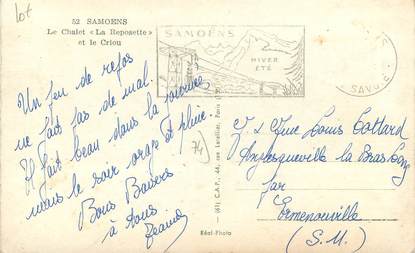 lot
52 SAMOENS
Le Chalet « La Reposette »
et le Criou
SAMOËNS
HIVER
ÉTÉ
SAVOIE
Un peu de repos
ne fait pas de mal.
Il fait beau dans la journée
mais le soir orage et pluie.
Bons Baisers
à tous
74
(61) C.A.P., 44, rue Letellier, Paris
Réal-Photo
Louis Cottard
Anglesqueville la Bras Long
par
Ermenouville
(S. M.)